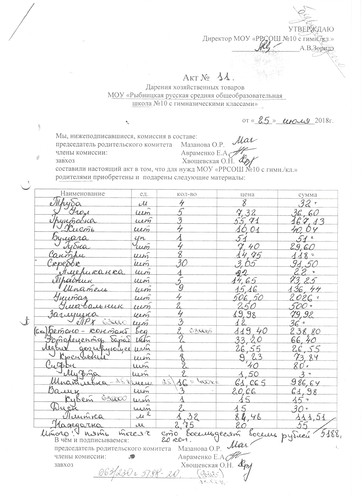 УТВЕРЖДАЮ
Директор МОУ «РРСОШ №10 с гимн.кл.»
А.В.
Акт № 11.
Дарения хозяйственных товаров
МОУ «Рыбницкая русская средняя общеобразовательная
школа №10 с гимназическими классами»
от « 25 » июля 2018г.
Мы, нижеподписавшиеся, комиссия в составе:
председатель родительского комитета Мазанова О.Р.
члены комиссии: Авраменко Е.А.
завхоз Хвощевская О.Н.
составили настоящий акт в том, что для нужд МОУ «РРСОШ №10 с гимн./кл.»
родителями приобретены и подарены следующие материалы:
Наименование ед. кол-во цена сумма
Труба м 4 8 32
Угол шт 5 7,32 36,60
Грунтовка шт 3 55,71 167,13
Кисть шт 4 10,01 40,04
Бумага уп 1 51 51
Губка шт 4 7,40 29,60
шт 8 14,75 118
шт 30 3,05 91,50
Американка шт 1 22 22
Тройник шт 5 14,65 73,25
Шпатели шт 9 15,16 136,44
Унитаз шт 4 506,50 2026
Умывальник шт 2 250 500
Заглушка шт 4 19,98 79,92
шт 3 12 36
2 119,40 238,80
шт 2 33,20 66,40
шт 1 26,55 26,55
шт 8 9,23 73,84
Сифон шт 2 40 80
Муфта шт 2 1,50 3
Шпатлевка 16 61,665 986,64
Валик шт 3 20,66 61,98
шт 1 15 15
шт 2 15 30
Плитка м² 1,32 84,48 111,51
Наждачка м 2,75 20 55
Итого: пять тысяч сто восемьдесят восемь рублей 5188,
20 коп.
В чём и подписываемся:
председатель родительского комитета Мазанова О.Р.
члены комиссии: Авраменко Е.А.
завхоз Хвощевская О.Н.